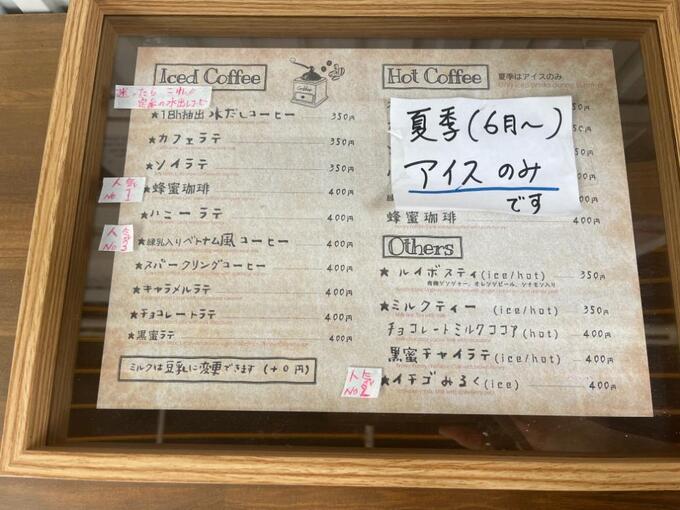 Iced Coffee
Coffee
迷ったらこれ!
定番の水出しコーヒー
★18h抽出 水だしコーヒー 350円
★カフェラテ 350円
★ソイラテ 350円
人気 No 1
★蜂蜜珈琲 400円
★ハニーラテ 400円
人気 No 3
★練乳入りベトナム風コーヒー 400円
★スパークリングコーヒー 400円
★キャラメルラテ 400円
★チョコレートラテ 400円
★黒蜜ラテ 400円
ミルクは豆乳に変更できます (+0円)
Hot Coffee 夏季はアイスのみ
夏季(6月~)
アイスのみ
です
蜂蜜珈琲 400円
Others
★ルイボスティ(ice/hot) 350円
有機ジンジャー、オレンジピール、シナモン入り
★ミルクティー (ice/hot) 350円
チョコレートミルクココア(hot) 400円
黒蜜チャイラテ(ice/hot) 400円
人気 No 2
★イチゴみるく(ice) 400円